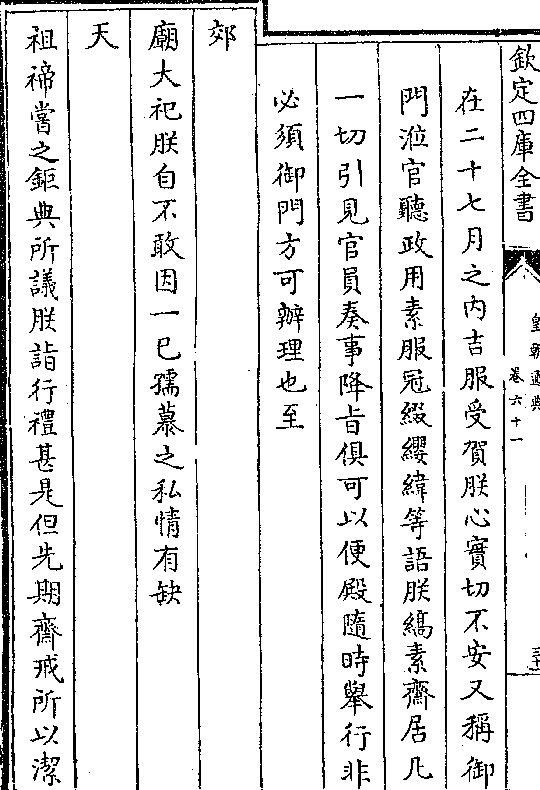 欽定四庫全書
皇朝通典
卷六十一
在二十七月之內吉服受賀朕心實切不安又稱御
門涖官聽政用素服冠綴纓緯等語朕縞素齋居凡
一切引見官員奏事降旨俱可以便殿隨時舉行非
必須御門方可辦理也至
郊
廟大祀朕自不敢因一己孺慕之私情有缺
天
祖禘嘗之鉅典所議朕詣行禮甚是但先期齋戒所以潔